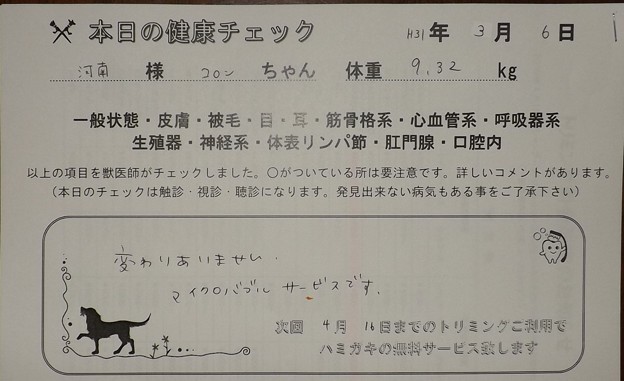 本日の健康チェック H31年 3月 6日
河南 様 コロン ちゃん 体重 9.32 kg
一般状態・皮膚・被毛・目・耳・筋骨格系・心血管系・呼吸器系
生殖器・神経系・体表リンパ節・肛門腺・口腔内
以上の項目を獣医師がチェックしました。〇がついている所は要注意です。詳しいコメントがあります。
(本日のチェックは触診・視診・聴診になります。発見出来ない病気もある事をご了承下さい)
変わりありません.
マイクロバブル サービスです.
次回 4月 16日までのトリミングご利用で
ハミガキの無料サービス致します